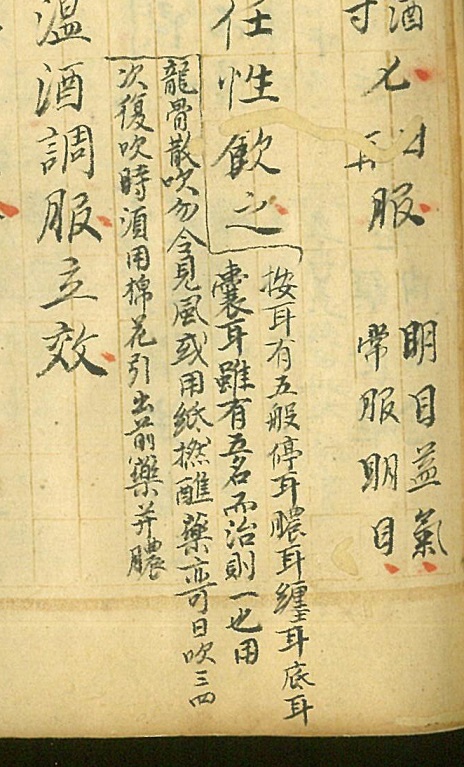 酒
寸
服
明目益氣
常服明目
任性飲之
按耳有五般停耳膿耳纏耳底耳
囊耳雖有五名而治則一也用
龍骨散吹勿令見風或用紙撚醮藥亦可日吹三四
次復吹時須用棉花引出前藥并膿
溫酒調服立效